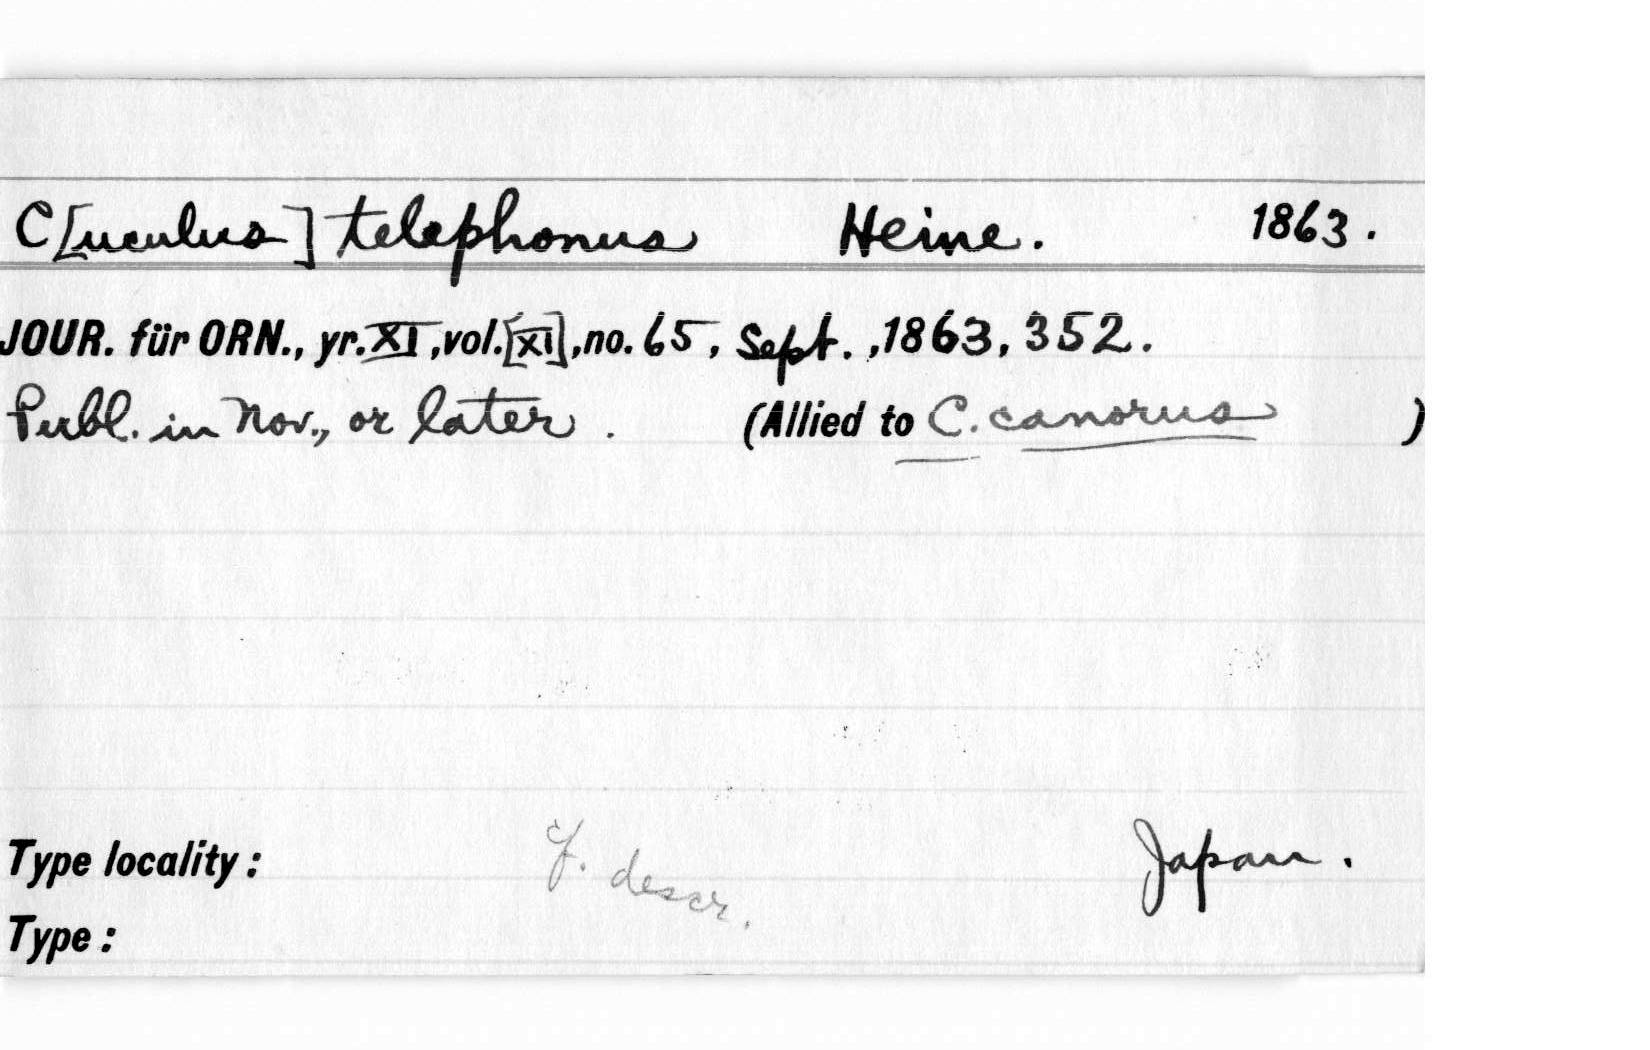 C[uculus] telephonus Heine. 1863.
JOUR. für ORN., yr. XI, vol. [XI], no. 65, Sept., 1863, 352.
Publ. in Nov., or later. (Allied to C. canorus )
Type locality: cf. descr. Japan.
Type: